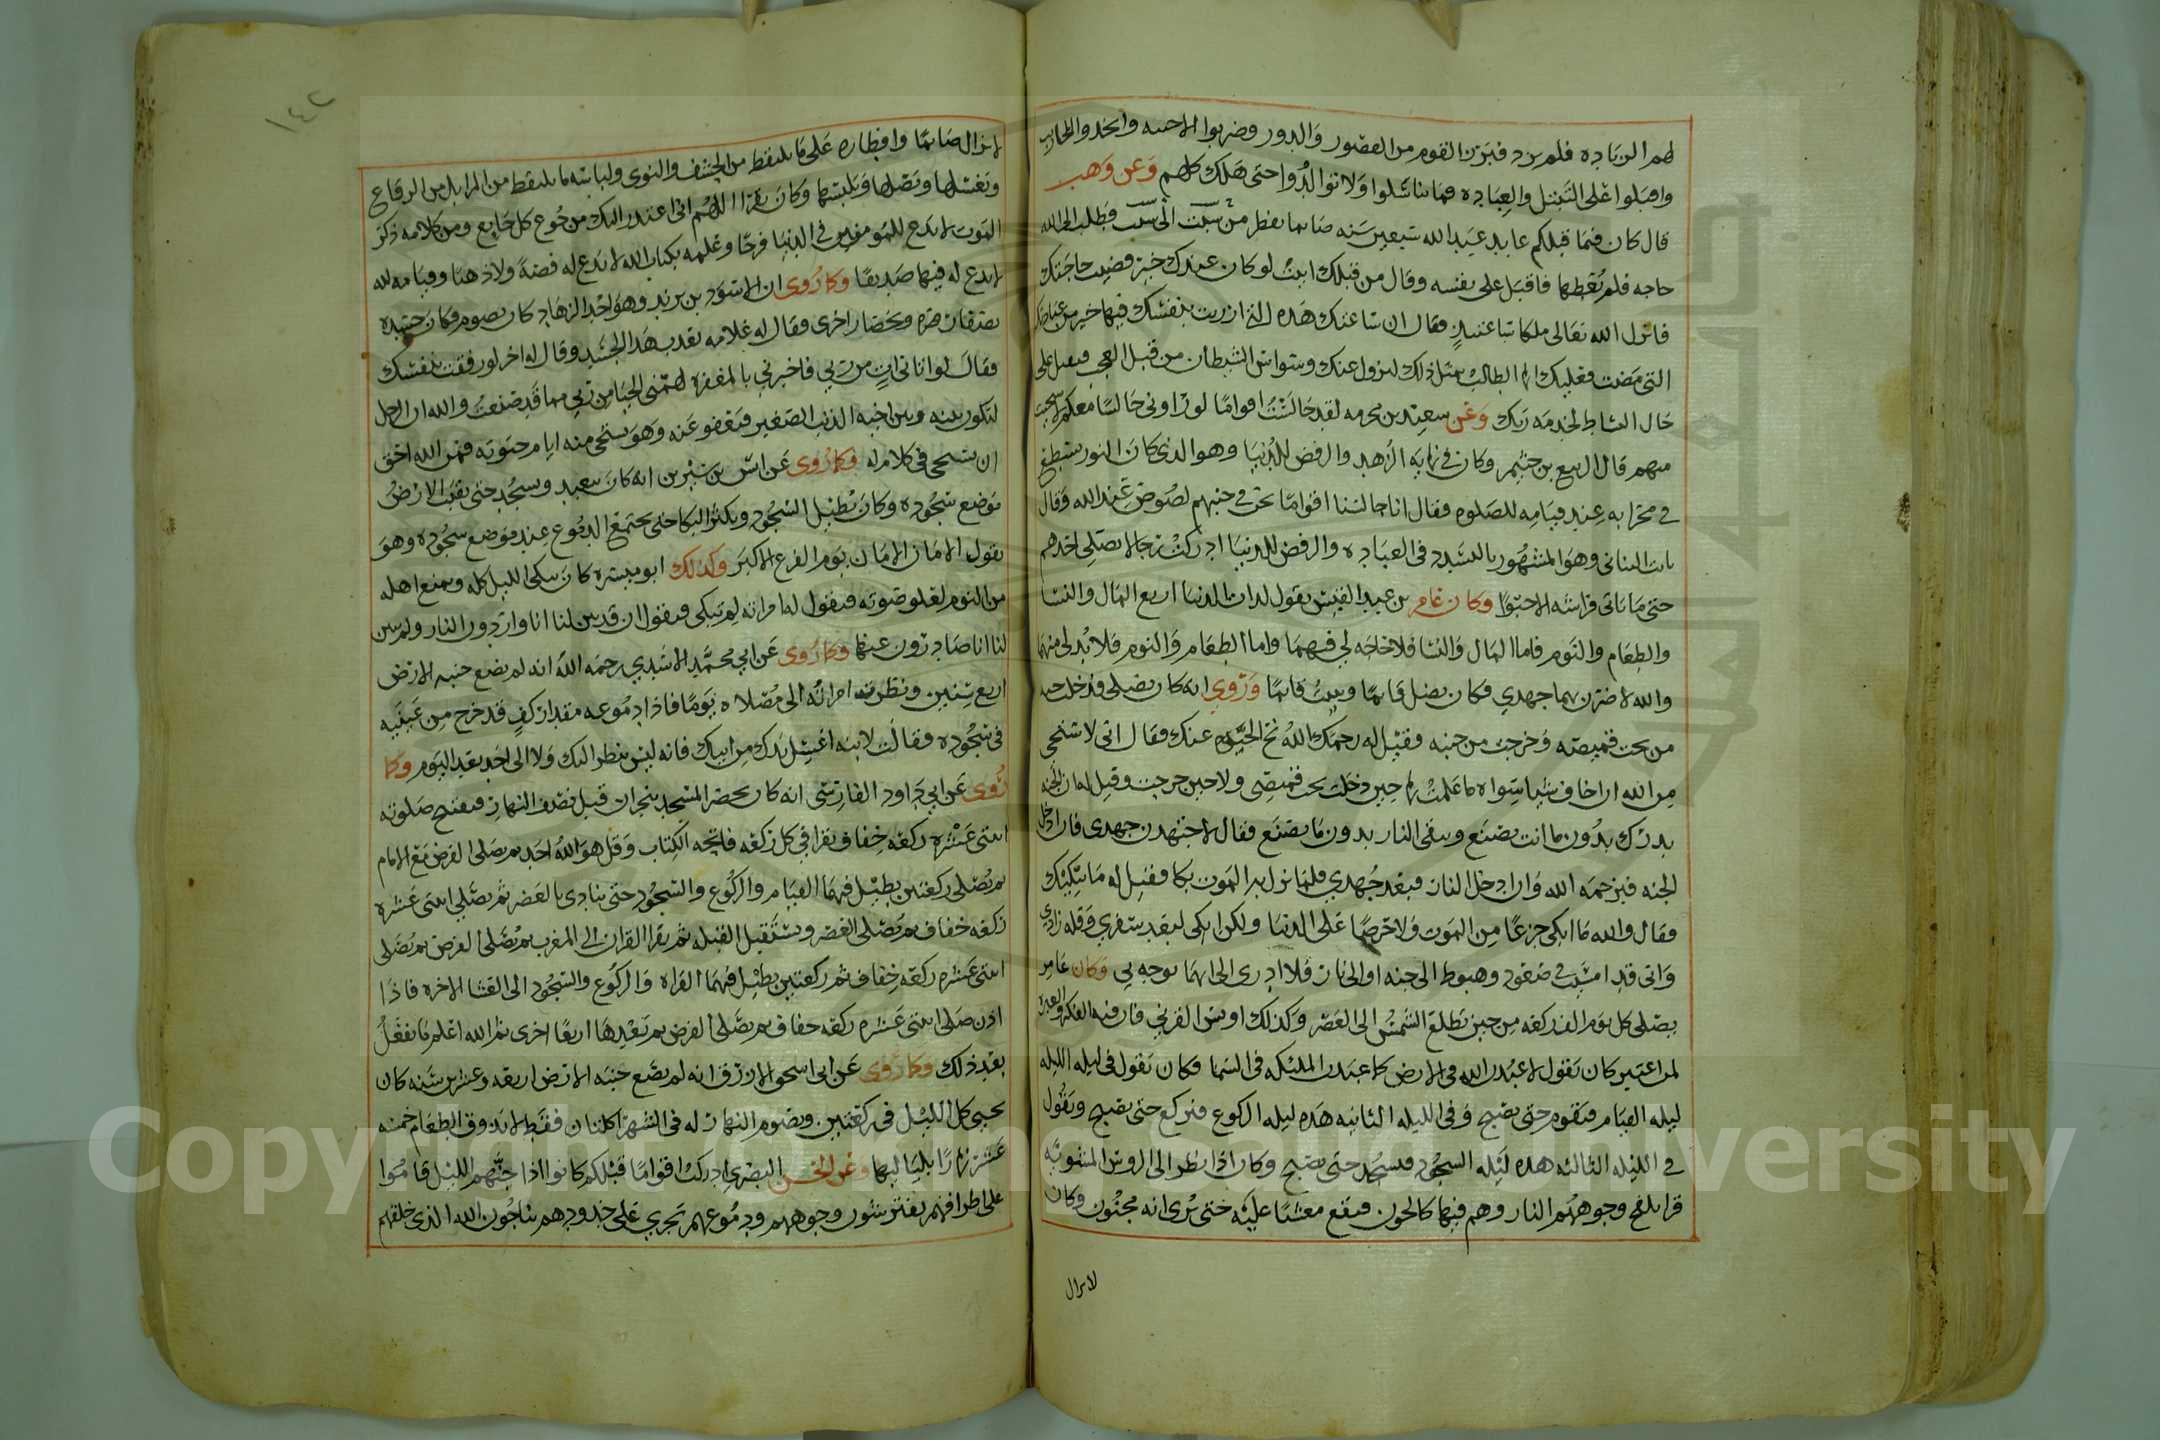 لهم الزياده فلم يزد فبرز القوم من القصور والدور وضربوا الاخبيه واتخذوا المحاريب
واقبلوا على التبتل والعباده فما تناسلوا ولا توالدوا حتى هلك كلهم وعن وهب
قال كان فيما قبلكم عابد عبد الله سبعين سنه صايما يفطر من سبت الى سبت وطلب الى الله
حاجه فلم يعطها فاقبل على نفسه وقال من قبلك اتيت لو كان عندك خير قضيت حاجتك
فانزل الله تعالى ملكا ساعتيذٍ فقال ان ساعتك هذه التي ازريت بنفسك فيها خير من عبادتك
التي مضت الطالب مثل ذلك ليزول عنك وسواس الشيطان من قبل العجب
حال النشاط لخدمه ربك وعن سعيد بن محرمه لقد جالست اقواما لو راوني جالسا معكم
منهم قال الربيع بن خثيم وكان في نهايه الزهد والرفض للدنيا وهو الذي كان النور يسطع
في محرابه عند قيامه للصلوه فقال انا جالسنا اقواما نحن في جنبهم لصوص عند الله وقال
ثابت البناني وهو المشهور بالتشدد في العباده والرفض للدنيا ادركت رجالا يصلي احدهم
حتى ما ياتي فراشه الا حبوًا وكان عامر بن عبد القيس يقول لذات الدنيا اربع المال والنسا
والطعام والنوم فاما المال والنسا فلا حاجه لي فيهما واما الطعام والنوم فلا بد لي منهما
والله لاضرن بهما جهدي فكان يضل قايما ويبيت قايما وروي انه كان يصلي فدخلت حيه
من تحت قميصه وخرجت من جنبه وقيل له رحمك الله نح الحيه عنك فقال اني لاستحي
من الله ان اخاف شيا سواه ما علمت بها حين دخلت تحت قميصي ولا حين خرجت وقيل له ان الجنه
تدرك بدون ما انت تصنع وتتقى النار بدون ما تصنع فقال لاجتهدن جهدي فان ادخل
الجنه فبرحمه الله وان ادخل النار فبعد جهدي فلما نزل به الموت بكا فقيل له ما يبكيك
فقال والله ما ابكي جزعًا من الموت ولا حرصًا على الدنيا ولكن ابكي لبعد سفري وقله زادي
واني قد امسيت في صعود وهبوط الى جنه او الى نار فلا ادري الى ايهما توجه بي وكان عامر
يصلي كل يوم الف ركعه من حين تطلع الشمس الى العصر وكذلك اويس القرني فان فيه الفكره والعبره
لمن اعتبر كان يقول لاعبدن الله في الارض كما عبدت المليكه في السما فكان يقول في ليله الليله
ليله القيام فيقوم حتى يصبح وفي الليله الثانيه هذه ليله الركوع فيركع حتى يصبح ويقول
في الليله الثالثه هذه ليله السجود فيسجد حتى يصبح وكان اذا نظر الى الروس المشويه
قرا تلفح وجوههم النار وهم فيها كالحون فيقع مغشيًا عليه حتى يرى انه مجنون وكان
لا يزال
١٤٢
لا يزال صايمًا وافطاره على ما يلتقط من الحشف والنوى ولباسه ما يلتقط من المزابل من الرقاع
ويغسلها ويصلها ويلبسها وكان يقرا اللهم اني اعتذر اليك من جوع كل جايع ومن كلامه ذكر
الموت لا يدع للمومنين في الدنيا فرحًا وعلمه بكتاب الله لا يدع له فضةً ولا ذهبًا وقيامه لله
لا يدع له فيها صديقًا وكما روى ان الاسود بن يزيد وهو احد الزهاد كان يصوم فكان جسده
يصفار مره ويخضار اخرى وقال له غلامه تعذب هذا الجسد وقال له اخر لو رفقت بنفسك
فقال لو اتاني اتٍ من ربي فاخبرني بالمغفره لهمني الحيا من ربي مما قد صنعت والله ان الرجل
لتكون بينه وبين اخيه الذنب الصغير فيعفو عنه وهو يستحي منه ايام حيوته فمن الله احق
ان يستحي في كلام له وكما روى عن انس بن سيرين انه كان يتعبد ويسجد حتى يقب الارض
موضع سجوده وكان يطيل السجود ويكثر البكا حتى يجتمع الدموع عند موضع سجوده وهو
يقول الامان الامان يوم الفزع الاكبر وكذلك ابو ميسره كان يبكي الليل كله ويمنع اهله
من النوم لعلو صوته فيقول له امراته لم تبكي فيقول ان قد بين لنا انا واردون النار ولم يبين
لنا انا صادرون عنها وكما روى عن ابي محمد الاسدي رحمه الله انه لم يضع جنبه الارض
اربع سنين ونظرت امراته الى مصلاه يومًا فاذا دموعه مقدار كفٍ قد خرج من عينيه
في سجوده وقالت لابنه اغسل يدك من ابيك فانه ليس ينظر اليك ولا الى احد بعد اليوم وكما
روى عن ابي داود الفارسي انه كان يحضر المسجد بنجران قبل نصف النهار فيفتتح صلوته
اثني عشره ركعه خفاف يقرا في كل ركعه فاتحه الكتاب وقل هو الله احد ثم يصلى الفرض مع الامام
ثم يصلى ركعتين يطيل فيهما القيام والركوع والسجود حتى ينادى بالعصر ثم يصلي اثني عشره
ركعه خفاف ثم يصلى العصر ويستقبل القبله ثم يقرا القران الى المغرب ثم يصلى الفرض ثم يصلى
اثني عشره ركعه خفاف ثم ركعتين يطيل فيهما القراه والركوع والسجود الى العشا الاخره فاذا
اذن صلى اثني عشره ركعه خفاف ثم يصلى الفرض ثم يعيدها اربعًا اخرى ثم الله اعلم ما يفعل
بعد ذلك وكما روى عن ابي اسحق الازرق انه لم يضع جنبه الارض اربعه وعشرين سنه كان
يحيي كل الليل في ركعتين ويصوم النهار له في الشهر اكلتان فقط لا يذوق الطعام خمسه
عشر نهارًا بلياليها وعن الحسن البصري ادركت اقوامًا قبلكم كانوا اذا جنهم الليل قاموا
على اطرافهم يفترشون وجوههم ودموعهم تجري على خدودهم يناجون الله الذي خلقهم
Copyright © King Saud University